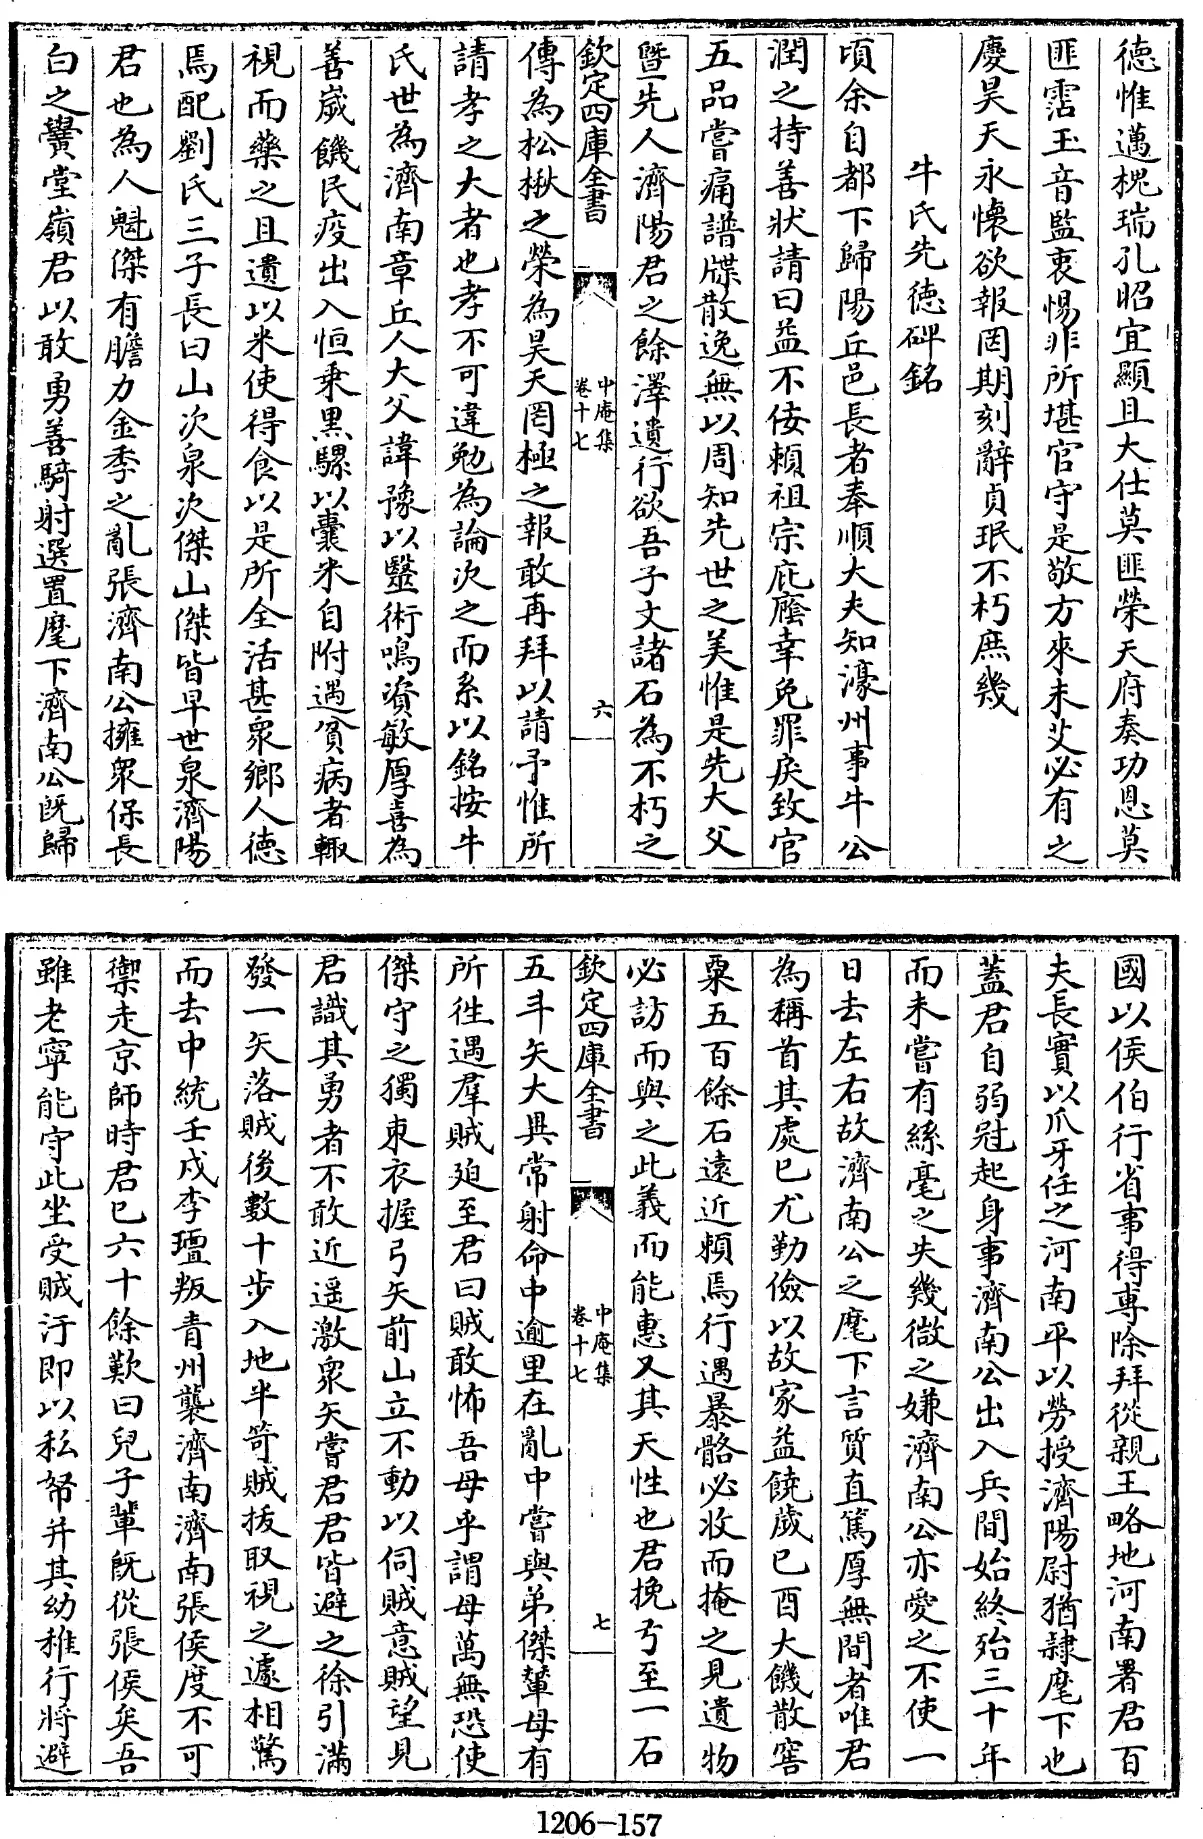 德惟邁槐瑞孔昭宜顯且大仕莫匪榮天府奏功恩莫
匪霑玉音監衷惕非所堪官守是敬方來未艾必有之
慶昊天永懷欲報罔期刻辭貞珉不朽庶幾
牛氏先德碑銘
頃余自都下歸陽丘邑長者奉順大夫知濠州事牛公
潤之持善狀請曰益不佞賴祖宗庇廕幸免罪戾致官
五品嘗痛譜牒散逸無以周知先世之美惟是先大父
暨先人濟陽君之餘澤遺行欲吾子文諸石為不朽之
欽定四庫全書 中庵集 卷十七 六
傳為松楸之榮為昊天罔極之報敢再拜以請予惟所
請孝之大者也孝不可違勉為論次之而系以銘按牛
氏世為濟南章丘人大父諱豫以醫術鳴資敏厚喜為
善歲饑民疫出入恒乗黑騾以囊米自附遇貧病者輙
視而藥之且遺以米使得食以是所全活甚衆鄉人德
焉配劉氏三子長曰山次泉次傑山傑皆早世泉濟陽
君也為人魁傑有膽力金季之亂張濟南公擁衆保長
白之黌堂嶺君以敢勇善騎射選置麾下濟南公既歸
國以侯伯行省事得專除拜從親王略地河南署君百
夫長實以爪牙任之河南平以勞授濟陽尉猶隷麾下也
蓋君自弱冠起身事濟南公出入兵間始終殆三十年
而未嘗有絲毫之失幾微之嫌濟南公亦愛之不使一
日去左右故濟南公之麾下言質直篤厚無間者唯君
為稱首其處已尤勤儉以故家益饒歲已酉大饑散窖
粟五百餘石遠近頼焉行遇暴骼必收而掩之見遺物
必訪而與之此義而能惠又其天性也君挽弓至一石
欽定四庫全書 中庵集 卷十七 七
五斗矢大異常射命中逾里在亂中嘗與弟傑輦母有
所徃遇羣賊廹至君曰賊敢怖吾母乎謂母萬無恐使
傑守之獨束衣握弓矢前山立不動以伺賊意賊望見
君識其勇者不敢近遥激衆矢嘗君君皆避之徐引滿
發一矢落賊後數十步入地半笴賊拔取視之遽相驚
而去中統壬戌李璮叛青州襲濟南濟南張侯度不可
禦走京師時君已六十餘歎曰兒子輩既從張侯矣吾
雖老寧能守此坐受賊汙即以私帑并其幼稚行將避
1206-157